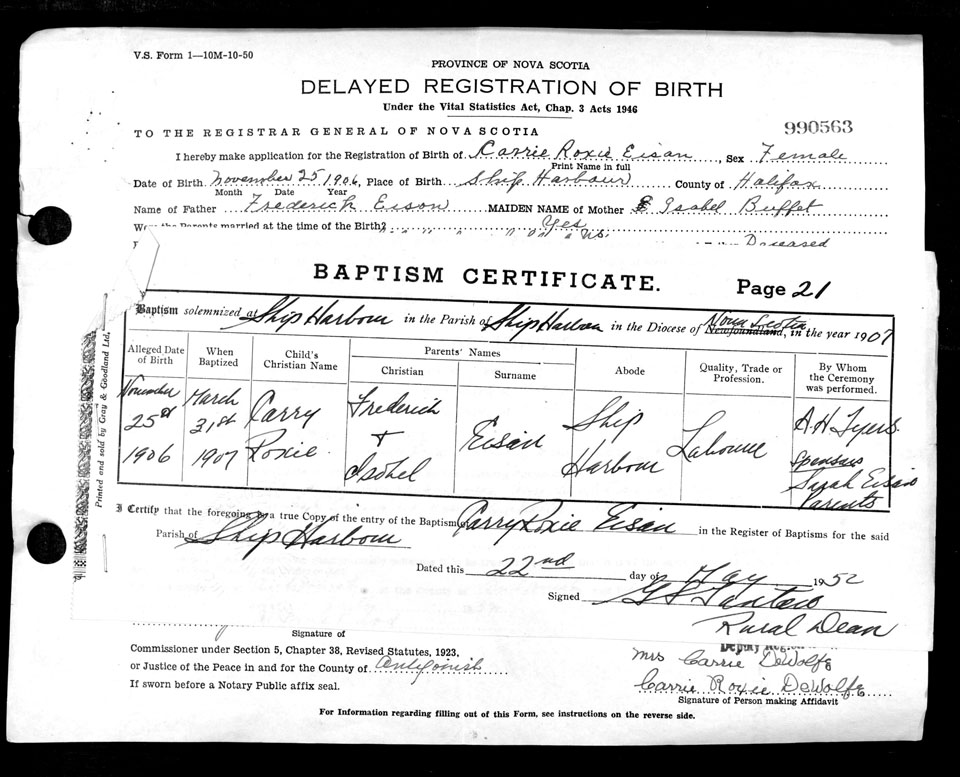 V.S. Form 1—10M-10-50
PROVINCE OF NOVA SCOTIA
DELAYED REGISTRATION OF BIRTH
Under the Vital Statistics Act, Chap. 3 Acts 1946
990563
TO THE REGISTRAR GENERAL OF NOVA SCOTIA
I hereby make application for the Registration of Birth of Carrie Roxie Eisan, Sex Female
Print Name in full
Date of Birth November 25 1906, Place of Birth Ship Harbour County of Halifax
Month Date Year
Name of Father Frederick Eison MAIDEN NAME of Mother Isabel Buffet
Were the Parents married at the time of the Birth? Yes
Deceased
BAPTISM CERTIFICATE. Page 21
Baptism solemnized at Ship Harbour in the Parish of Ship Harbour in the Diocese of Newfoundland, Nova Scotia in the year 1907
Alleged Date of Birth
When Baptized
Child's Christian Name
Parents' Names
Christian
Surname
Abode
Quality, Trade or Profession.
By Whom the Ceremony was performed.
November 25th 1906
March 31st 1907
Carry Roxie
Frederick + Isobel
Eisan
Ship Harbour
Labourer
A.H. Tyers
Sponsors
Sarah Eisan
Parents
Printed and sold by Gray & Goodland Ltd.
I Certify that the foregoing is a true Copy of the entry of the Baptism of Carry Roxie Eisan in the Register of Baptisms for the said
Parish of Ship Harbour
Dated this 22nd day of May 1952
Signed
Rural Dean
Signature of
Deputy
Commissioner under Section 5, Chapter 38, Revised Statutes, 1923,
or Justice of the Peace in and for the County of Antigonish
If sworn before a Notary Public affix seal.
Mrs Carrie DeWolfe
Carrie Roxie DeWolfe
Signature of Person making Affidavit
For Information regarding filling out of this Form, see instructions on the reverse side.